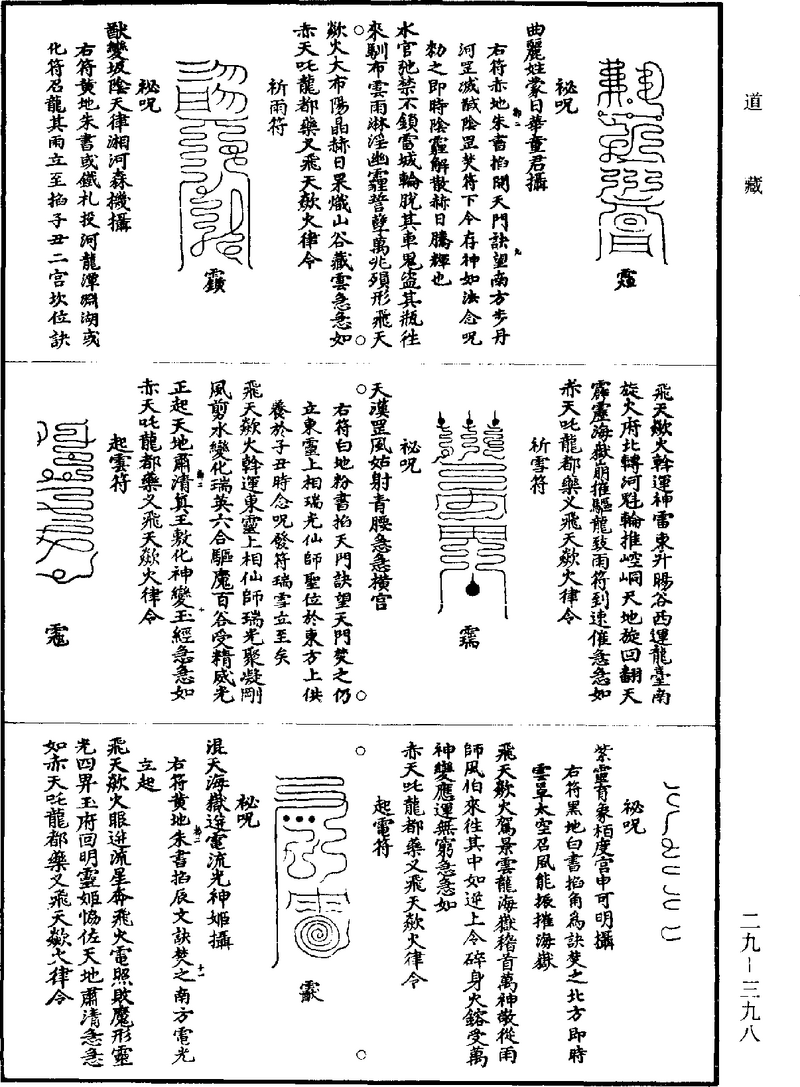 道藏
秘呪
曲麗姓蒙日華童君攝
右符赤地朱書掐開天門訣望南方步丹
河罡滅醎陰罡焚符下令存神如法念呪
勑之即時陰霾解散赫日騰輝也
水官弛禁不鎖雷城輪脫其車鬼盜其瓶往
來馴布雲雨淋淫幽霾誓孽萬兆殞形飛天
歘火大布陽晶赫日杲熾山谷藏雲急急如
赤天吒龍都藥叉飛天歘火律令
祈雨符
秘呪
獣變坂陰天律湘河森機攝
右符黃地朱書或鐵札投河龍潭淵湖或
化符召龍其雨立至掐子丑二宫坎位訣
飛天歘火斡運神雷東升暘谷西運龍臺南
旋火府北轉河魁輪推崆峒天地旋回翻天
霹靂海嶽崩摧驅龍致雨符到速催急急如
赤天吒龍都藥叉飛天歘火律令
祈雪符
瑞
秘呪
天漢罡風姑射青腰急急横宫
右符白地粉書掐天門訣望天門焚之仍
立東靈上相瑞光仙師聖位於東方上供
養於子丑時念呪發符瑞雪立至矣
飛天歘火斡運東靈上相仙師瑞光聚凝剛
風剪水變化瑞英六合驅魔百谷受精威光
正起天地肅清真王敷化神變玉經急急如
赤天吒龍都藥叉飛天歘火律令
起雲符
秘呪
紫靈育象栢度宫申可明攝
右符黑地白書掐角為訣焚之北方即時
雲罩太空召風能振摧海嶽
飛天歘火駕景雲龍海嶽稽首萬神敬從雨
師風伯來往其中如逆上令碎身火鎔受萬
神變應運無窮急急如
赤天吒龍都藥叉飛天歘火律令
起電符
秘呪
混天海嶽迸電流光神姬攝
右符黃地朱書掐辰文訣焚之南方電光
立起
飛天歘火眼迸流星奔飛火電照敗魔形靈
光四界玉府回明靈姬恊佐天地肅清急急
如赤天吒龍都藥叉飛天歘火律令
二九－三九八